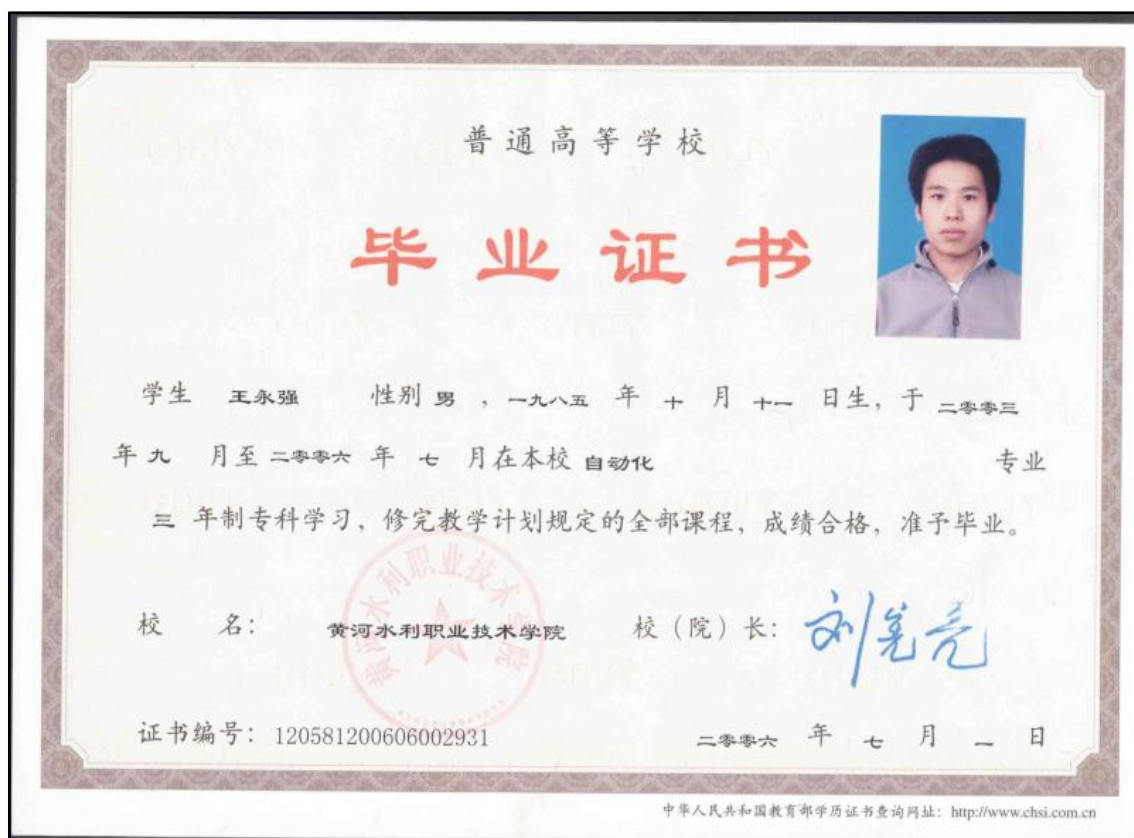 普通高等学校
毕业证书
学生 王永强 性别 男 ，一九八五 年 十 月 十一 日生，于 二零零三
年 九 月至 二零零六 年 七 月在本校 自动化 专业
三 年制专科学习，修完教学计划规定的全部课程，成绩合格，准予毕业。
黄河水利职业技术学院
校 名： 黄河水利职业技术学院 校（院）长：
证书编号：120581200606002931 二零零六 年 七 月 一 日
中华人民共和国教育部学历证书查询网址：http://www.chsi.com.cn